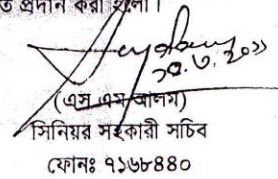 ত প্রদান করা হলো।
(এস এম আলম)
সিনিয়র সহকারী সচিব
ফোনঃ ৭১৬৮৪৪০